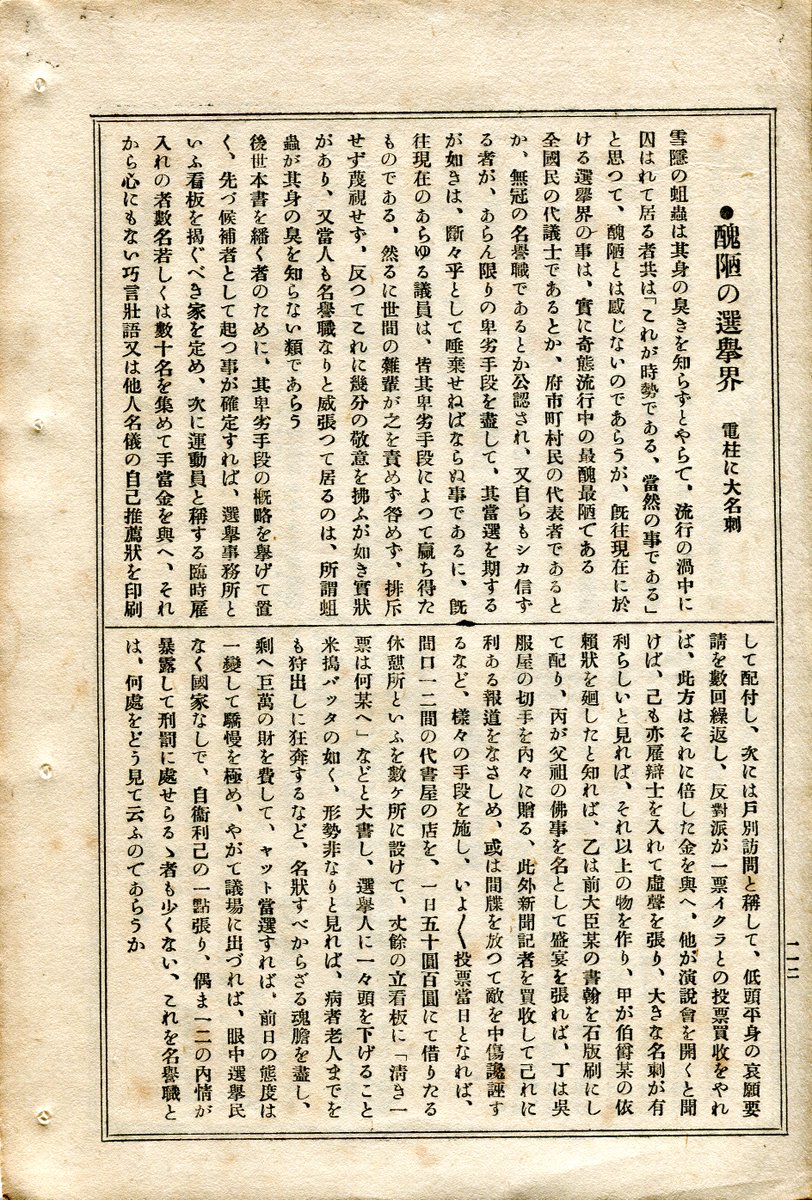 ●醜陋の選擧界　電柱に大名刺
雪隱の蛆蟲は其身の臭きを知らずとやらで、流行の渦中に
囚はれて居る者共は「これが時勢である、當然の事である」
と思つて、醜陋とは感じないのであらうが、旣往現在に於
ける選擧界の事は、實に奇態流行中の最醜最陋である
全國民の代議士であるとか、府市町村民の代表者であると
か、無冠の名譽職であるとか公認され、又自らもシカ信す
る者が、あらん限りの卑劣手段を盡して、其當選を期する
が如きは、斷々乎として唾棄せねばならぬ事であるに、旣
往現在のあらゆる議員は、皆其卑劣手段によつて贏ち得た
ものである、然るに世間の雜輩が之を責めず咎めず、排斥
せず蔑視せず、反つてこれに幾分の敬意を拂ふが如き實狀
があり、又當人も名譽職なりと威張つて居るのは、所謂蛆
蟲が其身の臭を知らない類であらう
後世本書を繙く者のために、其卑劣手段の概略を擧げて置
く、先づ候補者として起つ事が確定すれば、選擧事務所と
いふ看板を揭ぐべき家を定め、次に運動員と稱する臨時雇
入れの者數名若しくは數十名を集めて手當金を與へ、それ
から心にもない巧言壯語又は他人名儀の自己推薦狀を印刷
して配付し、次には戶別訪問と稱して、低頭平身の哀願要
請を數回繰返し、反對派が一票イクラとの投票買收をやれ
ば、此方はそれに倍した金を與へ、他が演說會を開くと聞
けば、己も亦雇辯士を入れて虛聲を張り、大きな名刺が有
利らしいと見れば、それ以上の物を作り、甲が伯爵某の依
賴狀を廻したと知れば、乙は前大臣某の書翰を石版刷にし
て配り、丙が父祖の佛事を名として盛宴を張れば、丁は吳
服屋の切手を內々に贈る、此外新聞記者を買收して己れに
利ある報道をなさしめ、或は間牒を放つて敵を中傷讒誣す
るなど、樣々の手段を施し、いよ〳〵投票當日となれば、
間口一二間の代書屋の店を、一日五十圓百圓にて借りたる
休憩所といふを數ケ所に設けて、丈餘の立看板に「淸き一
票は何某へ」などと大書し、選擧人に一々頭を下げること
米搗バッタの如く、形勢非なりと見れば、病者老人までを
も狩出しに狂奔するなど、名狀すべからざる魂膽を盡し、
剩へ巨萬の財を費して、ヤット當選すれば、前日の態度は
一變して驕慢を極め、やがて議場に出づれば、眼中選擧民
なく國家なしで、自衞利己の一點張り、偶ま一二の內情が
暴露して刑罰に處せらるゝ者も少くない、これを名譽職と
は、何處をどう見て云ふのであらうか
一一二